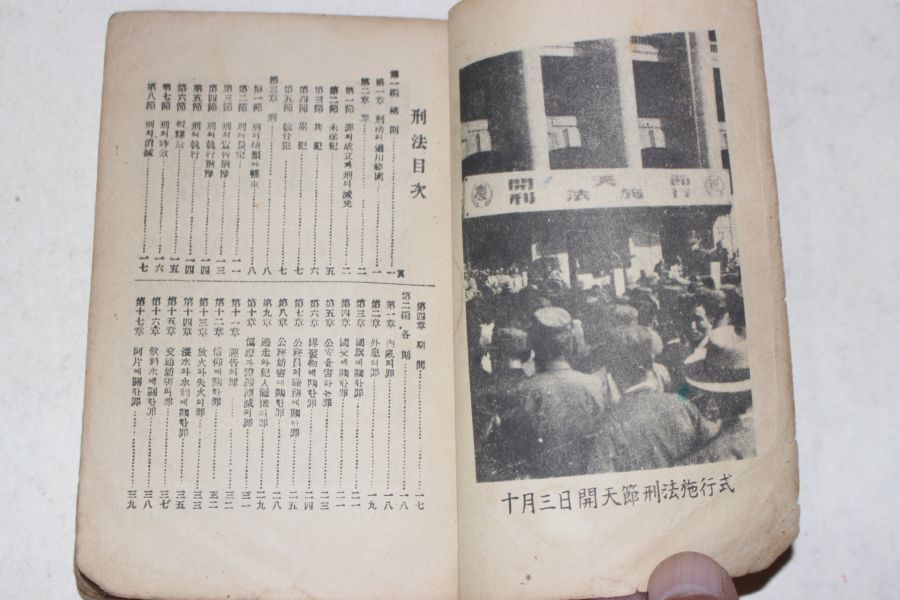 慶 開天節 祝
刑法施行
十月三日開天節刑法施行式
刑法目次
頁
第一編 總則……一
第一章 刑法의適用範圍……一
第二章 罪……二
第一節 罪의成立과刑의減免……二
第二節 未遂犯……五
第三節 共犯……六
第四節 累犯……七
第五節 競合犯……七
第三章 刑……八
第一節 刑의種類와輕重……八
第二節 刑의量定……一一
第三節 刑의宣告猶豫……一三
第四節 刑의執行猶豫……一四
第五節 刑의執行……一四
第六節 假釋放……一五
第七節 刑의時效……一六
第八節 刑의消滅……一七
第四章 期間……一七
第二編 各則……一八
第一章 內亂의罪……一八
第二章 外患의罪……一九
第三章 國旗에關한罪……二一
第四章 國交에關한罪……二一
第五章 公安을害하는罪……二三
第六章 爆發物에關한罪……二四
第七章 公務員의職務에關한罪……二五
第八章 公務妨害에關한罪……二八
第九章 逃走와犯人隱匿의罪……二九
第十章 僞證과證據湮滅의罪……三一
第十一章 誣告의罪……三二
第十二章 信仰에關한罪……三二
第十三章 放火와失火의罪……三三
第十四章 溢水와水利에關한罪……三五
第十五章 交通妨害의罪……三七
第十六章 飮料水에關한罪……三八
第十七章 阿片에關한罪……三九